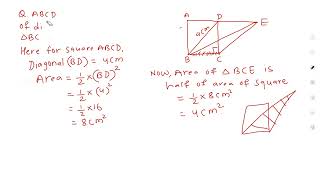 Q. ABCD
of di
ΔBC
Here for square ABCD,
Diagonal (BD) = 4cm
Area = 1/2 × (BD)²
= 1/2 × (4)²
= 1/2 × 16
= 8cm²
A D E
4cm
B C
Now, Area of Δ BCE is
half of area of square
= 1/2 × 8cm²
= 4cm²